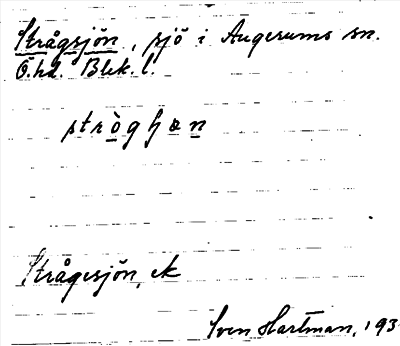 Strågsjön, sjö i Augerums sn.
Ö.hd. Blek. l.
Strågesjön, ek
Sven Hartman, 193